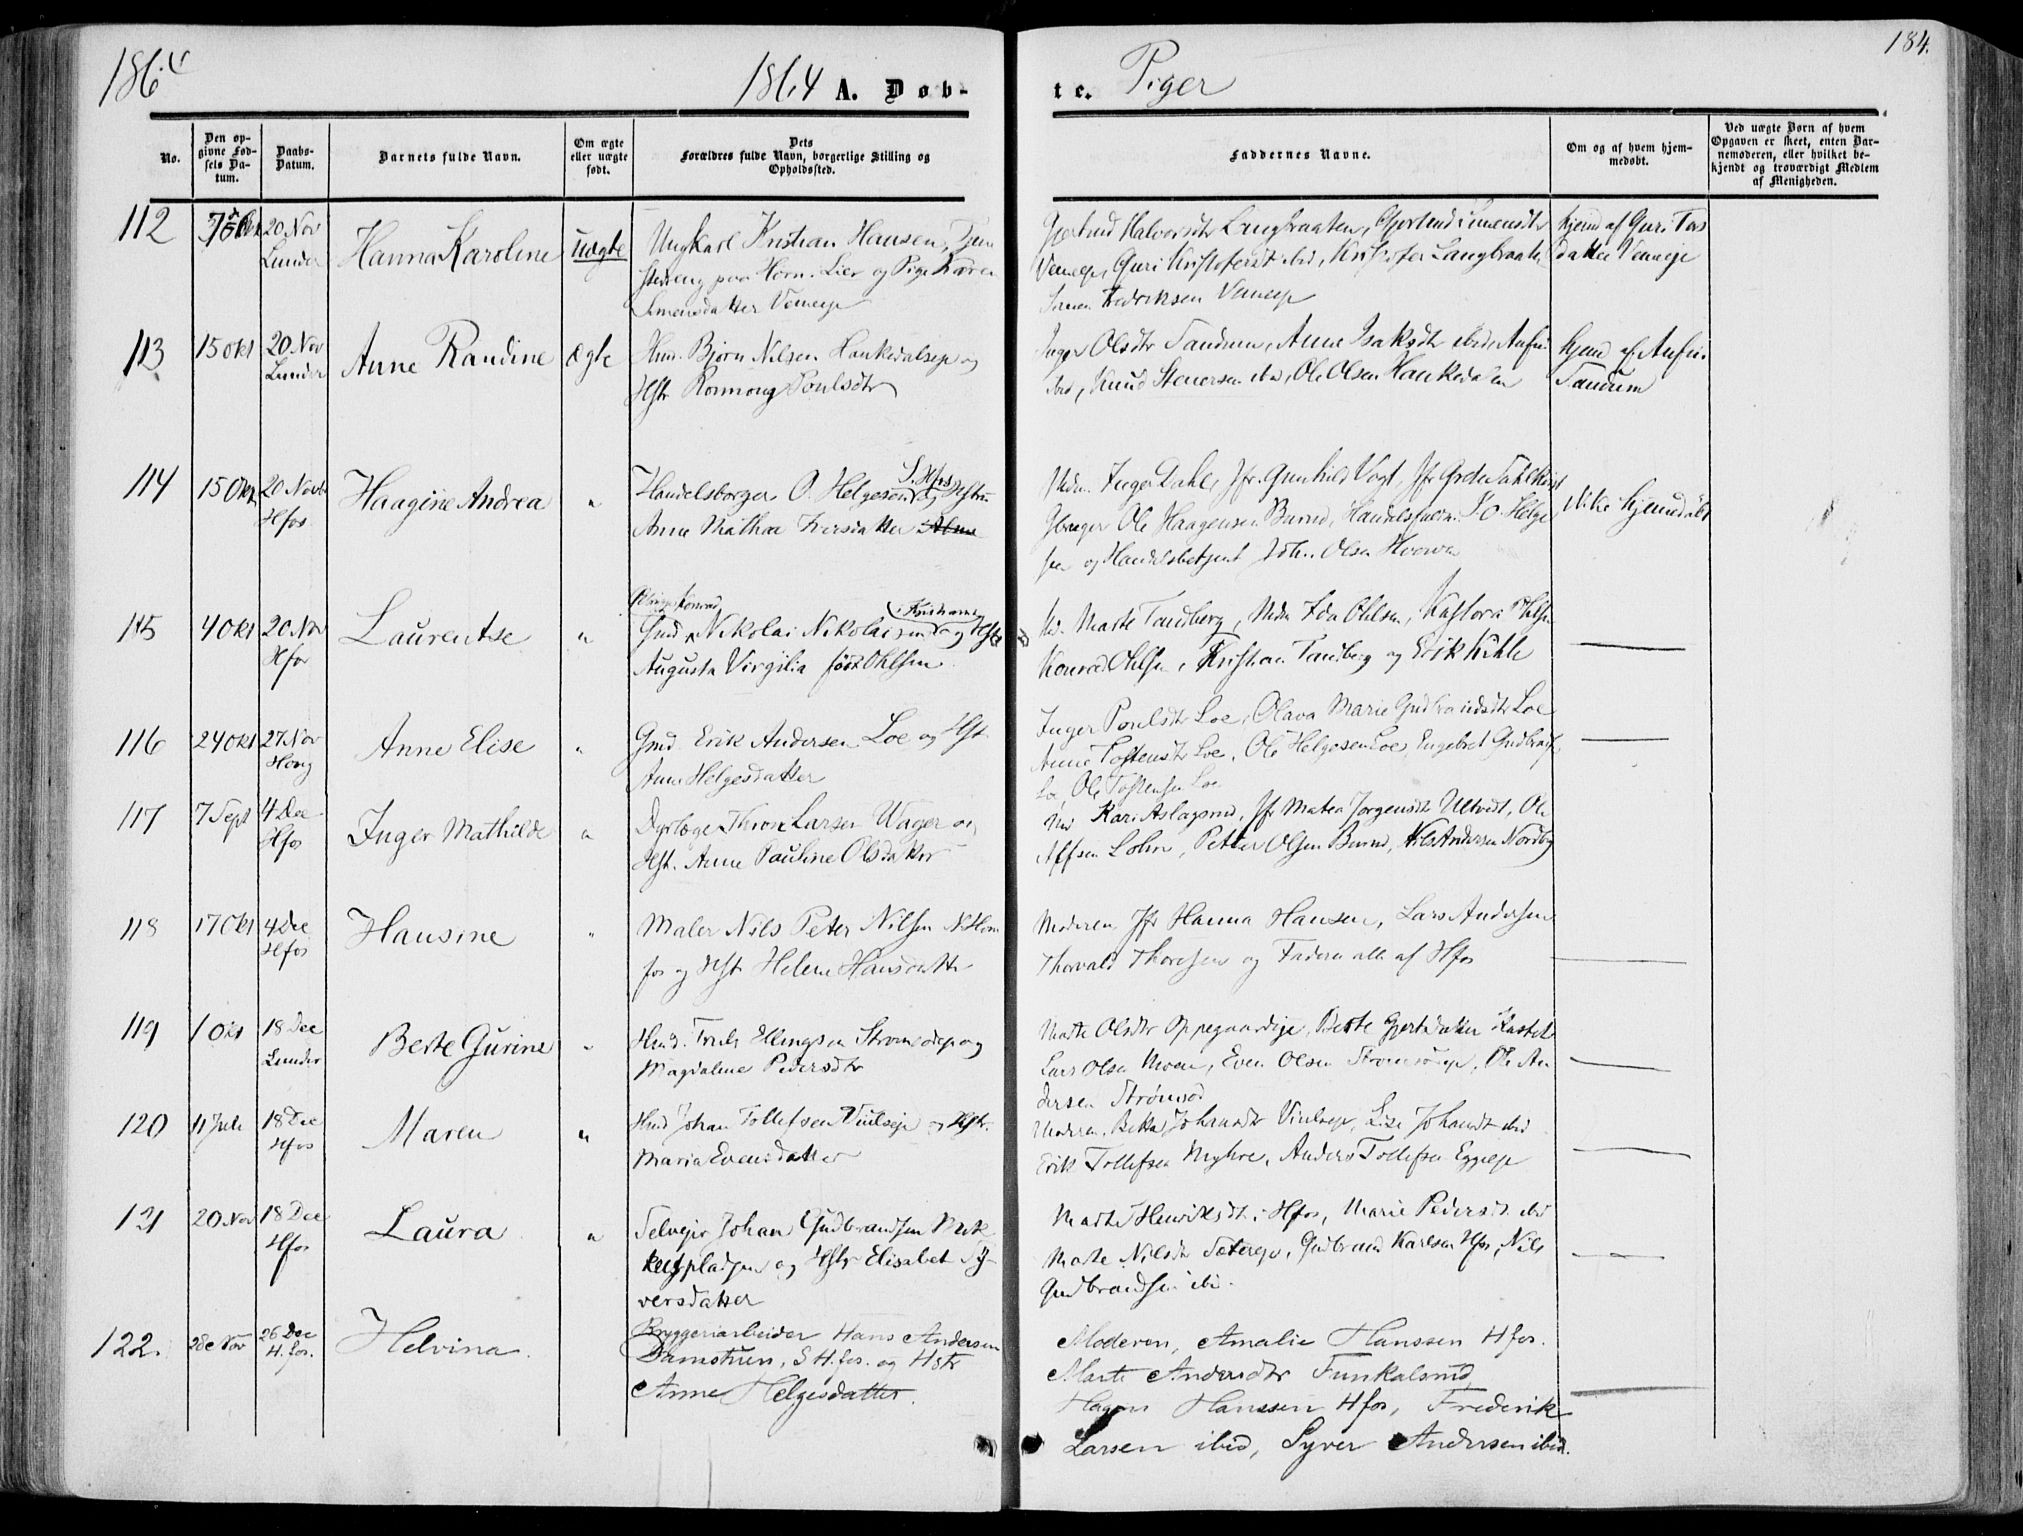 1864
1864 A. Døb-
te. Piger
184.
No.
Den op-
givne Fød-
sels Da-
tum.
Daabs-
Datum.
Barnets fulde Navn.
Om ægte
eller uægte
født.
Dets
Forældres fulde Navn, borgerlige Stilling og
Opholdssted.
Faddernes Navne.
Om og af hvem hjem-
medøbt.
Ved uægte Børn af hvem
Opgaven er skeet, enten Bar-
nemoderen, eller hvilket be-
kjendt og troværdigt Medlem
af Menigheden.
112
20 Nov
Lunder
Hanna Karoline
uægte
Ungkarl Kristian Hansen, Tjene
stedreng paa Horn. Lier og Pige Karen
Simensdatter Vemeje
Gjertrud Halvorsdtr Langbraaten, Gjertrud Simensdtr
Vemeje, Guri Kristofersdt ibid, Kristofer Langbraaten
Fredriksen Vemeje
hjemd af Guri Tors
datter Vemeje
113
15 Okt
20 Nov
Lunder
Anne Randine
Ægte
Hmd. Bjørn Nilsen Haukedalseje og
Hstr Ronnoug Poulsdtr
Inger Olsdtr Tandum, Anne Isaksdtr ibid, Anfin
ibid, Knud Stenersen ibid, Ole Olsen Haukedalen
hjemd af Anfin
Tandum
114
15 Okt
20 Novb
Hfos
Haagine Andrea
"
S. Hfos
Handelsborger O. Helgesen og Hstru
Anne Mathea Iversdatter
Mdm. Inger Dahl, Jfr. Gunhild Vogt, Jfr Grethe Dahlkvist
Gbruger Ole Haagensen Busund, Handelsfuldm. P. O. Helge
sen og Handelsbetjent Joh. Olsen Hverven
ikke hjemmedøbt
115
4 Okt
20 Nov
Hfos
Laurentse
"
Konrad
Kristiania
Gmd Nikolai Nikolaisen og Hstr
Augusta Virgilia født Ohlsen
Marte Tandberg, Mdm Ida Ohlsen, Kastora Ohlsen
Konrad Ohlsen, Kristian Tandberg og Erik Kihle
116
24 Okt
27 Nov
Houg
Anne Elise
"
Gmd Erik Andersen Loe og Hst.
Anne Helgesdatter
Inger Poulsdtr Loe, Olava Marie Gudbrandsdtr Loe
Anne Tostensdtr Loe, Ole Helgesen Loe, Engebret Gudbrandsen
Loe Ole Tostensen Loe
117
7 Sept
4 Dec
Hfos
Inger Mathilde
"
Dyrlæge Thron Larsen Wager og
Hst. Anne Pauline Olsdatter
Kari Aslagsrud, Jfr Matea Jørgensdtr Ultvedt, Ole
Affsen Lohre, Petter Olsen Busund, Nils Andersen Nordby
118
17 Okt
4 Dec
Hfos
Hansine
"
Maler Nils Peter Nilsen N Høne
fos og Hstr Helene Hansdatter
Moderen, Jfr Hanna Hansen, Lars Andersen
Thorvald Thoresen og Faderen alle af Hfos
119
1 Okt
18 Dec
Lunder
Berte Gurine
"
Hmd. Truls Ellingsen Strømsødeje og
Magdalene Pedersdtr
Marte Olsdtr Oppegaardeje, Berte Gjertsdatter Hastet
Lars Olsen Moen, Even Olsen Strømsødeje, Ole An
dersen Strømsød
120
11 Juli
18 Dec
Hfos
Maren
"
Hmd Johan Tollefsen Viulseje og Hstr.
Maria Evensdatter
Moderen, Berta Johansdtr Viulseje, Lise Johansdt ibid
Erik Tollefsen Myhre, Anders Tollefsen Eggeeje
121
20 Nov
18 Dec
Hfos
Laura
"
Selvejer Johan Gudbrandsen Mæk
kelspladsen og Hstr Elisabet Sy-
versdatter
Marte Henriksdt. i Hfos, Marie Pedersdt. ibid
Marte Nilsdtr Sætereje, Gudbrand Karlsen Hfos, Nils
Gudbrandsen ibid.
122.
28e Nov
26 Dec
H.fos.
Helvina.
Bryggeriarbeider Hans Andersen
Damstuen, S H.fos. og Hstr
Anne Helgesdatter.
Moderen, Amalie Hanssen Hfos.
Marte Andersdtr Funkalsrud,
Hagen Hanssen Hfos, Frederik
Larsen ibid, Syver Andersen ibid.